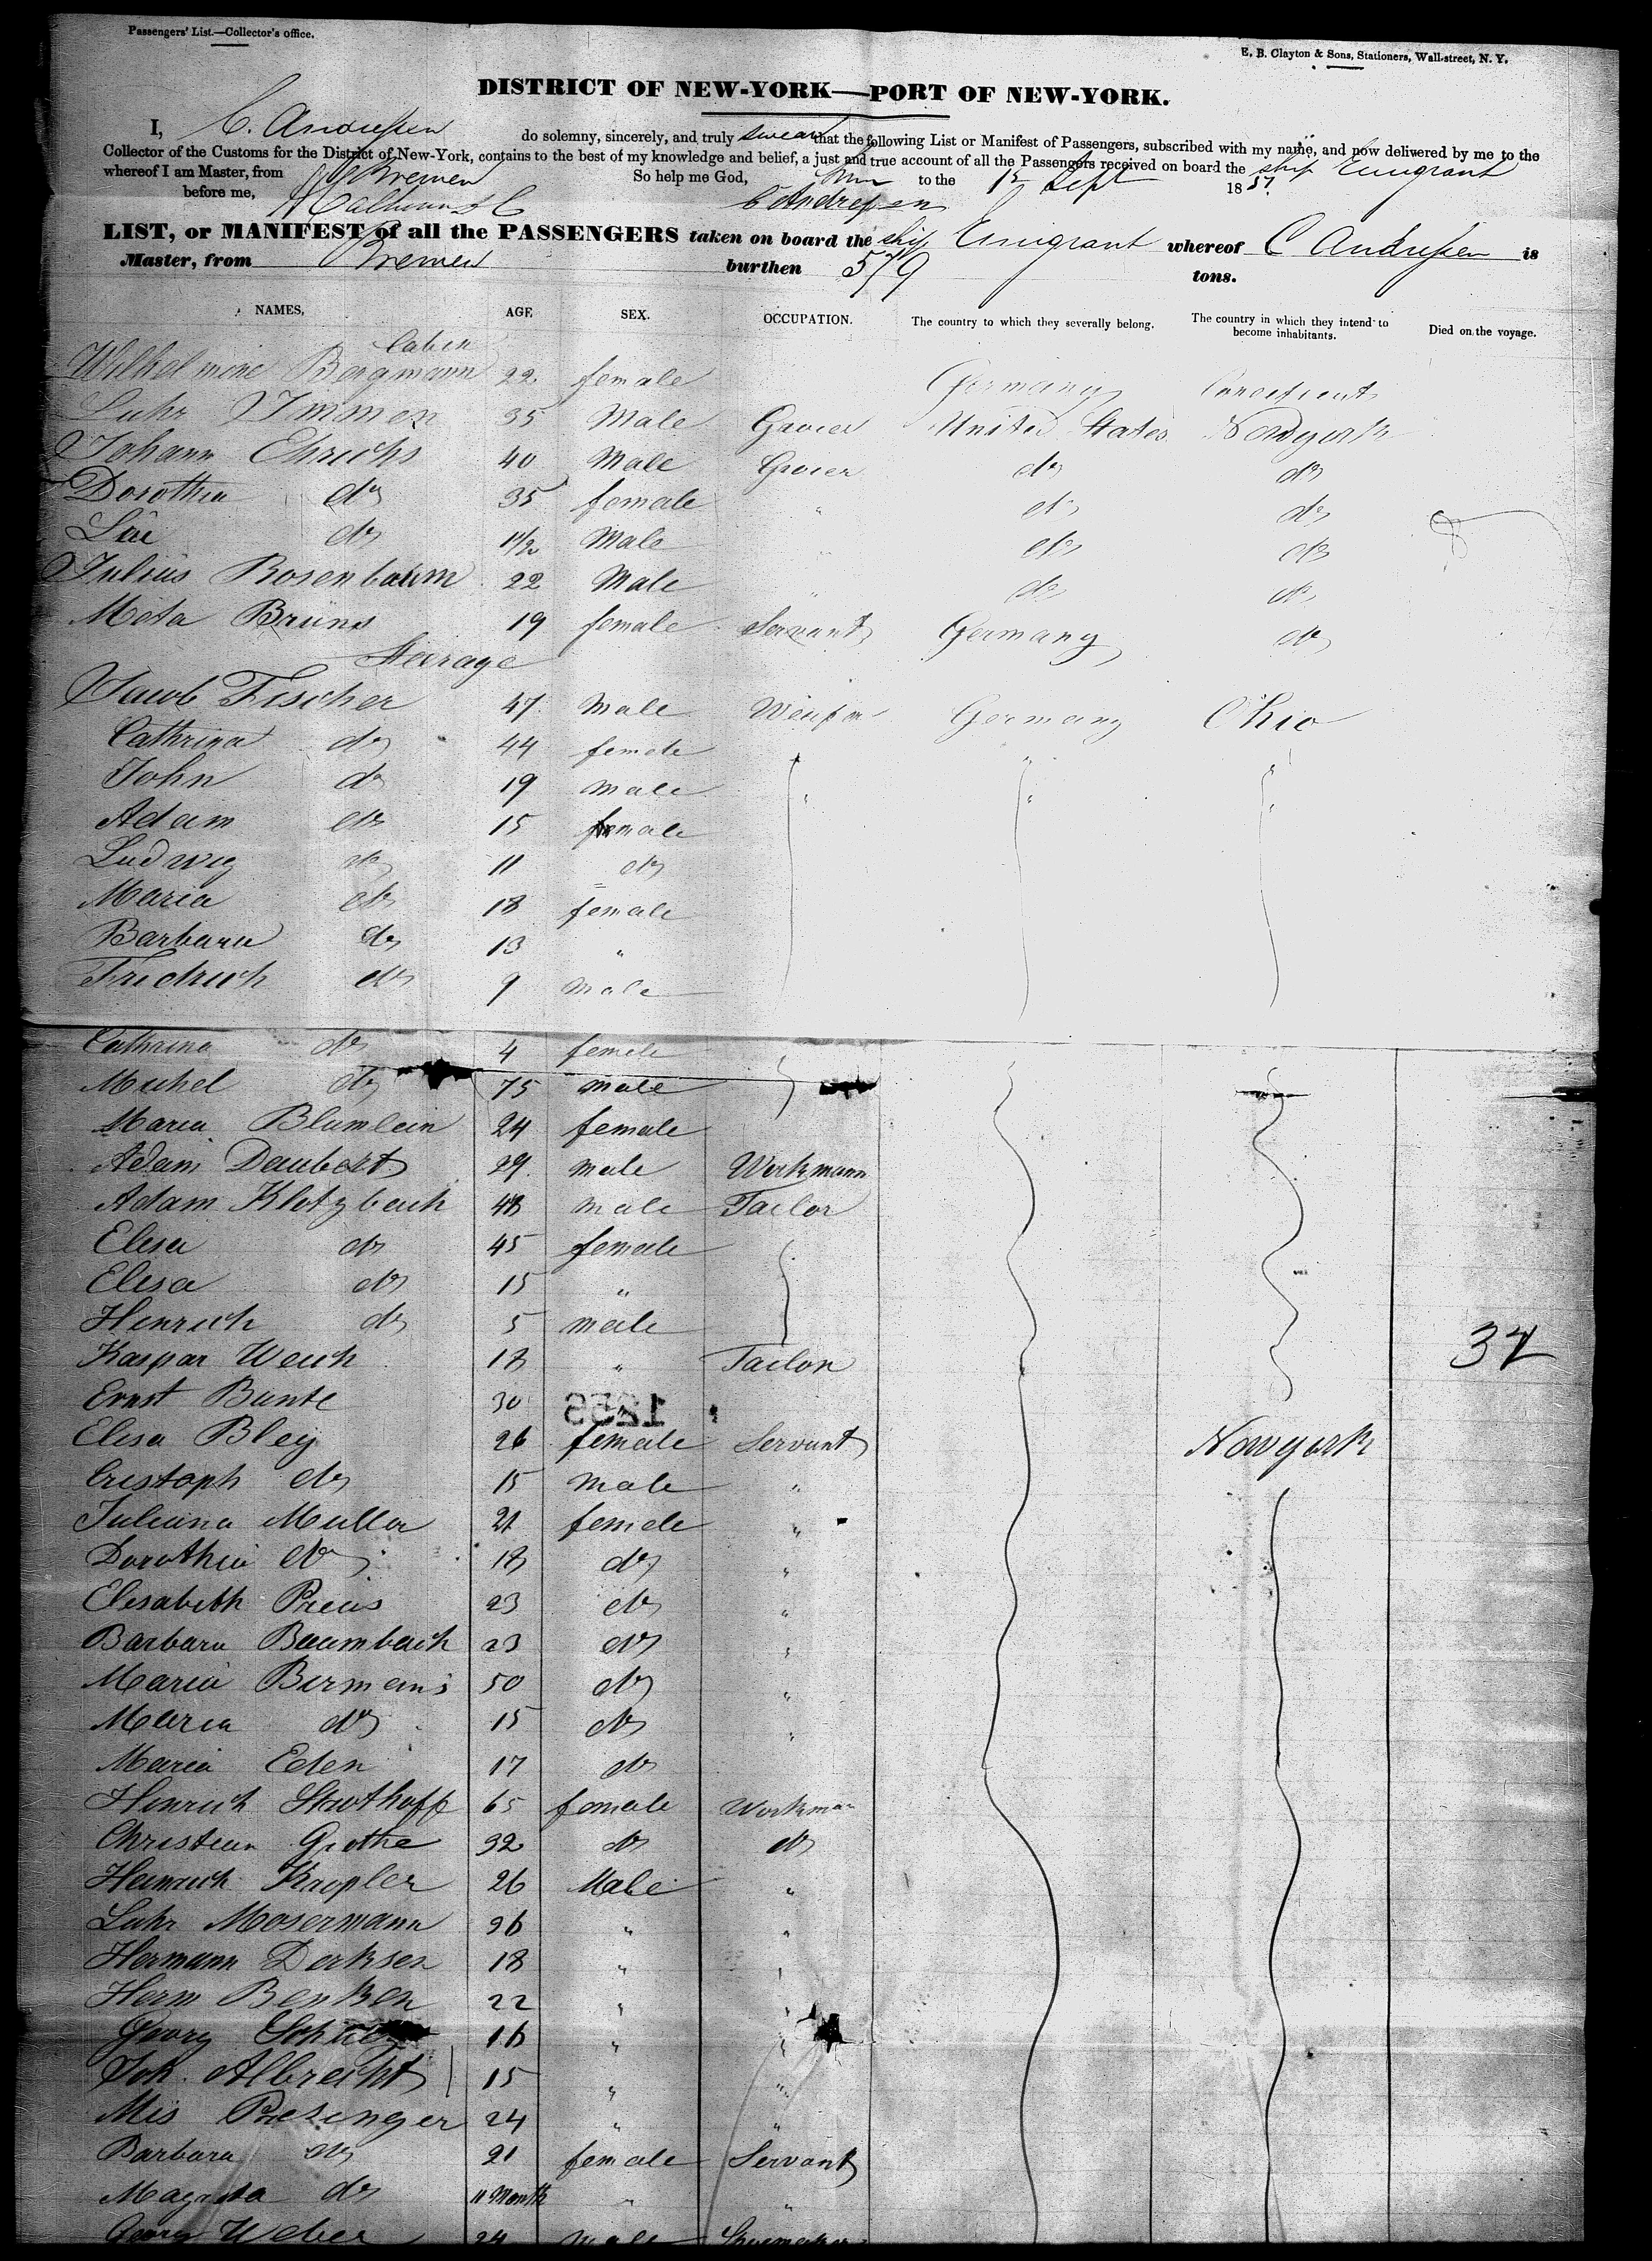 Passengers' List.—Collector's office.
E. B. Clayton & Sons, Stationers, Wall-street, N. Y.
DISTRICT OF NEW-YORK—PORT OF NEW-YORK.
I, C. Andressen do solemny, sincerely, and truly swear that the following List or Manifest of Passengers, subscribed with my name, and now delivered by me to the
Collector of the Customs for the District of New-York, contains to the best of my knowledge and belief, a just and true account of all the Passengers received on board the ship Emigrant
whereof I am Master, from Bremen So help me God, to the 12 Sept 1857.
before me, C Andressen
LIST, or MANIFEST of all the PASSENGERS taken on board the ship Emigrant whereof C Andressen is
Master, from Bremen burthen 579 tons.
NAMES, AGE SEX. OCCUPATION. The country to which they severally belong. The country in which they intend to become inhabitants. Died on the voyage.
Cabin
Wilhelmine Bergmann 22 female Germany
Luhr Immen 35 Male Grocer United States Newyork
Johann Ehrichs 40 Male Grocer do do
Dorothea do 35 female " do do
do 1 1/2 Male " do do
Julius Rosenbaum 22 Male " do do
Meta Brüns 19 female Servant Germany do
Steirage
Jacob Fischer 47 Male Germany Ohio
Cathrina do 44 female " " "
John do 19 male " " "
Adam do 15 male
Ludwig do 11 do
Maria do 18 female
Barbara do 13 "
Fridrich do 9 male
Cathrina do 4 female
Michel do 75 male
Maria Blumlein 24 female
Adam Daubert 29 male Workmann
Adam Klotzbach 48 male Tailor
Elisa do 45 female
Elisa do 15 "
Heinrich do 5 male
Kaspar Weich 18 " Tailor
37
Ernst Bunte 30
1256
Elisa Bley 26 female Servant Newyork
Cristoph do 15 male "
Juliana Muller 21 female "
Dorothia do 18 do "
Elisabeth Preuis 23 do "
Barbara Baumbach 23 do "
Maria Birmans 50 do "
Maria do 15 do "
Maria Eden 17 do
Hinrich Struthoff 65 female Workman
Christian Grothe 32 do do
Heinrich Kappler 26 Male "
Luhr Mosermann 36 " "
Hermann Derksen 18 " "
Herm Benken 22 " "
Georg 16 " "
Joh. Albrecht 15 " "
Mis Presinger 24 " "
Barbara do 21 female Servant
Magreta do 11 Month " "
Georg Weber 24 male Shoemaker